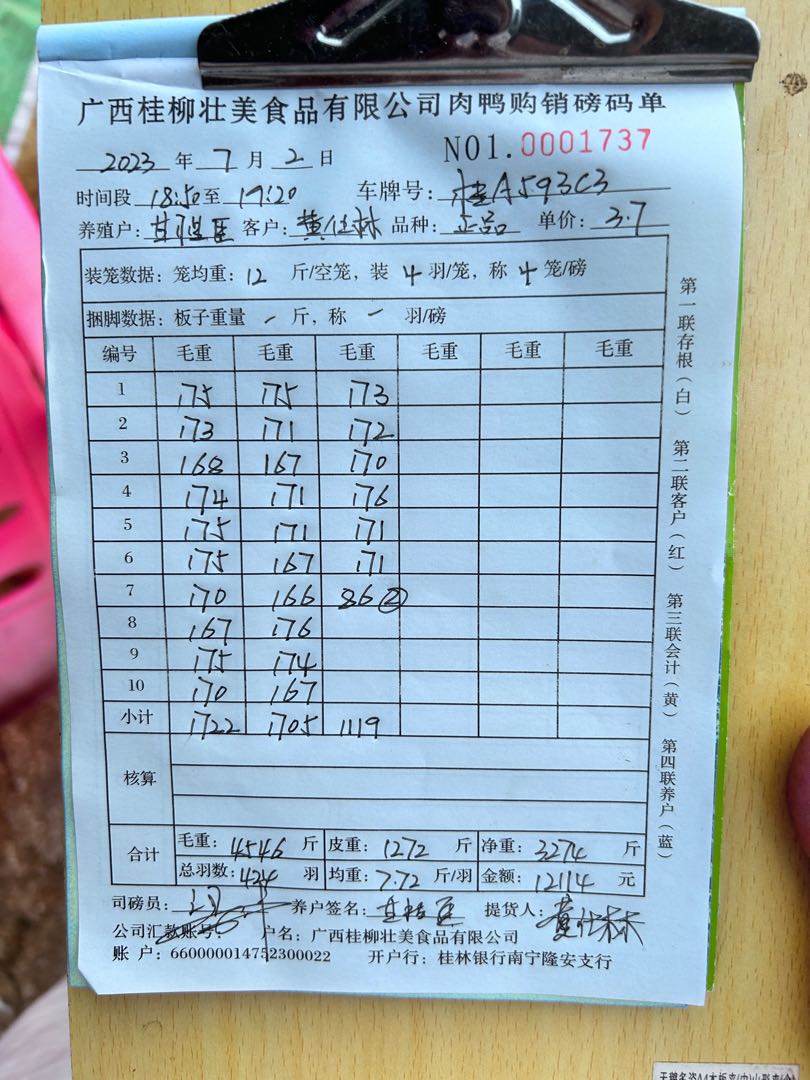 广西桂柳壮美食品有限公司肉鸭购销磅码单
2023 年 7 月 2 日 NO1.0001737
时间段 18:50 至 19:20 车牌号: 桂A593C3
养殖户: 客户: 黄仕林 品种: 正品 单价: 3.7
装笼数据: 笼均重: 12 斤/空笼, 装 4 羽/笼, 称 4 笼/磅
捆脚数据: 板子重量 - 斤, 称 - 羽/磅
编号 毛重 毛重 毛重 毛重 毛重 毛重
1 175 175 173
2 173 171 172
3 168 167 170
4 174 171 176
5 175 171 171
6 175 167 171
7 170 166 86②
8 167 176
9 175 174
10 170 167
小计 1722 1705 1119
核算
合计 毛重: 4546 斤 皮重: 1272 斤 净重: 3274 斤
总羽数: 424 羽 均重: 7.72 斤/羽 金额: 12114 元
司磅员: 养户签名: 提货人: 黄仕林
公司汇款账号: 户名: 广西桂柳壮美食品有限公司
账 户: 660000014752300022 开户行: 桂林银行南宁隆安支行
第一联存根(白) 第二联客户(红) 第三联会计(黄) 第四联养户(蓝)